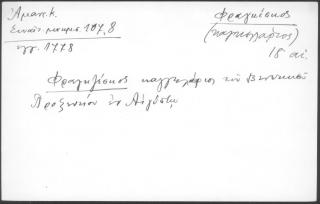 Ἀμαντ. Κ.
Σιναϊτ. μνημ. 107, 8
ἔγγ. 1778
Φραγκίσκος
(καγκελάριος)
18 αἰ.
Φραγκίσκος καγγελάριος τοῦ Βενετικοῦ
Προξενείου ἐν Αἰγύπτῳ